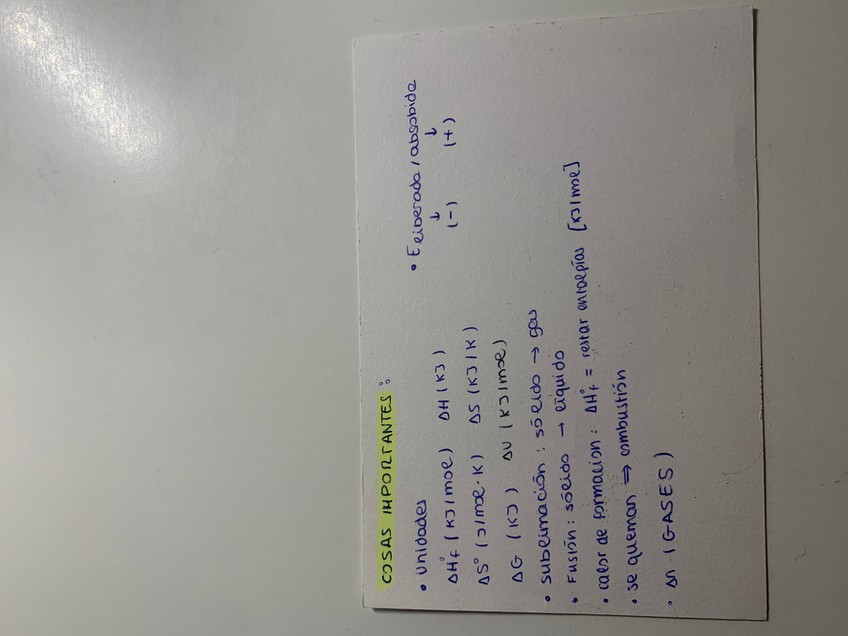 COSAS IMPORTANTES:
• Unidades
ΔH°f (KJ/mol) ΔH (KJ)
ΔS° (J/mol·K) ΔS (KJ/K)
ΔG (KJ) ΔU (KJ/mol)
• Sublimación: sólido → gas
• Fusión: sólido → líquido
• calor de formacion: ΔH°f = restar entalpías [KJ/mol]
• se queman ⇒ combustión
• Δn (GASES)
• E liberada / absobida
↓ ↓
(-) (+)